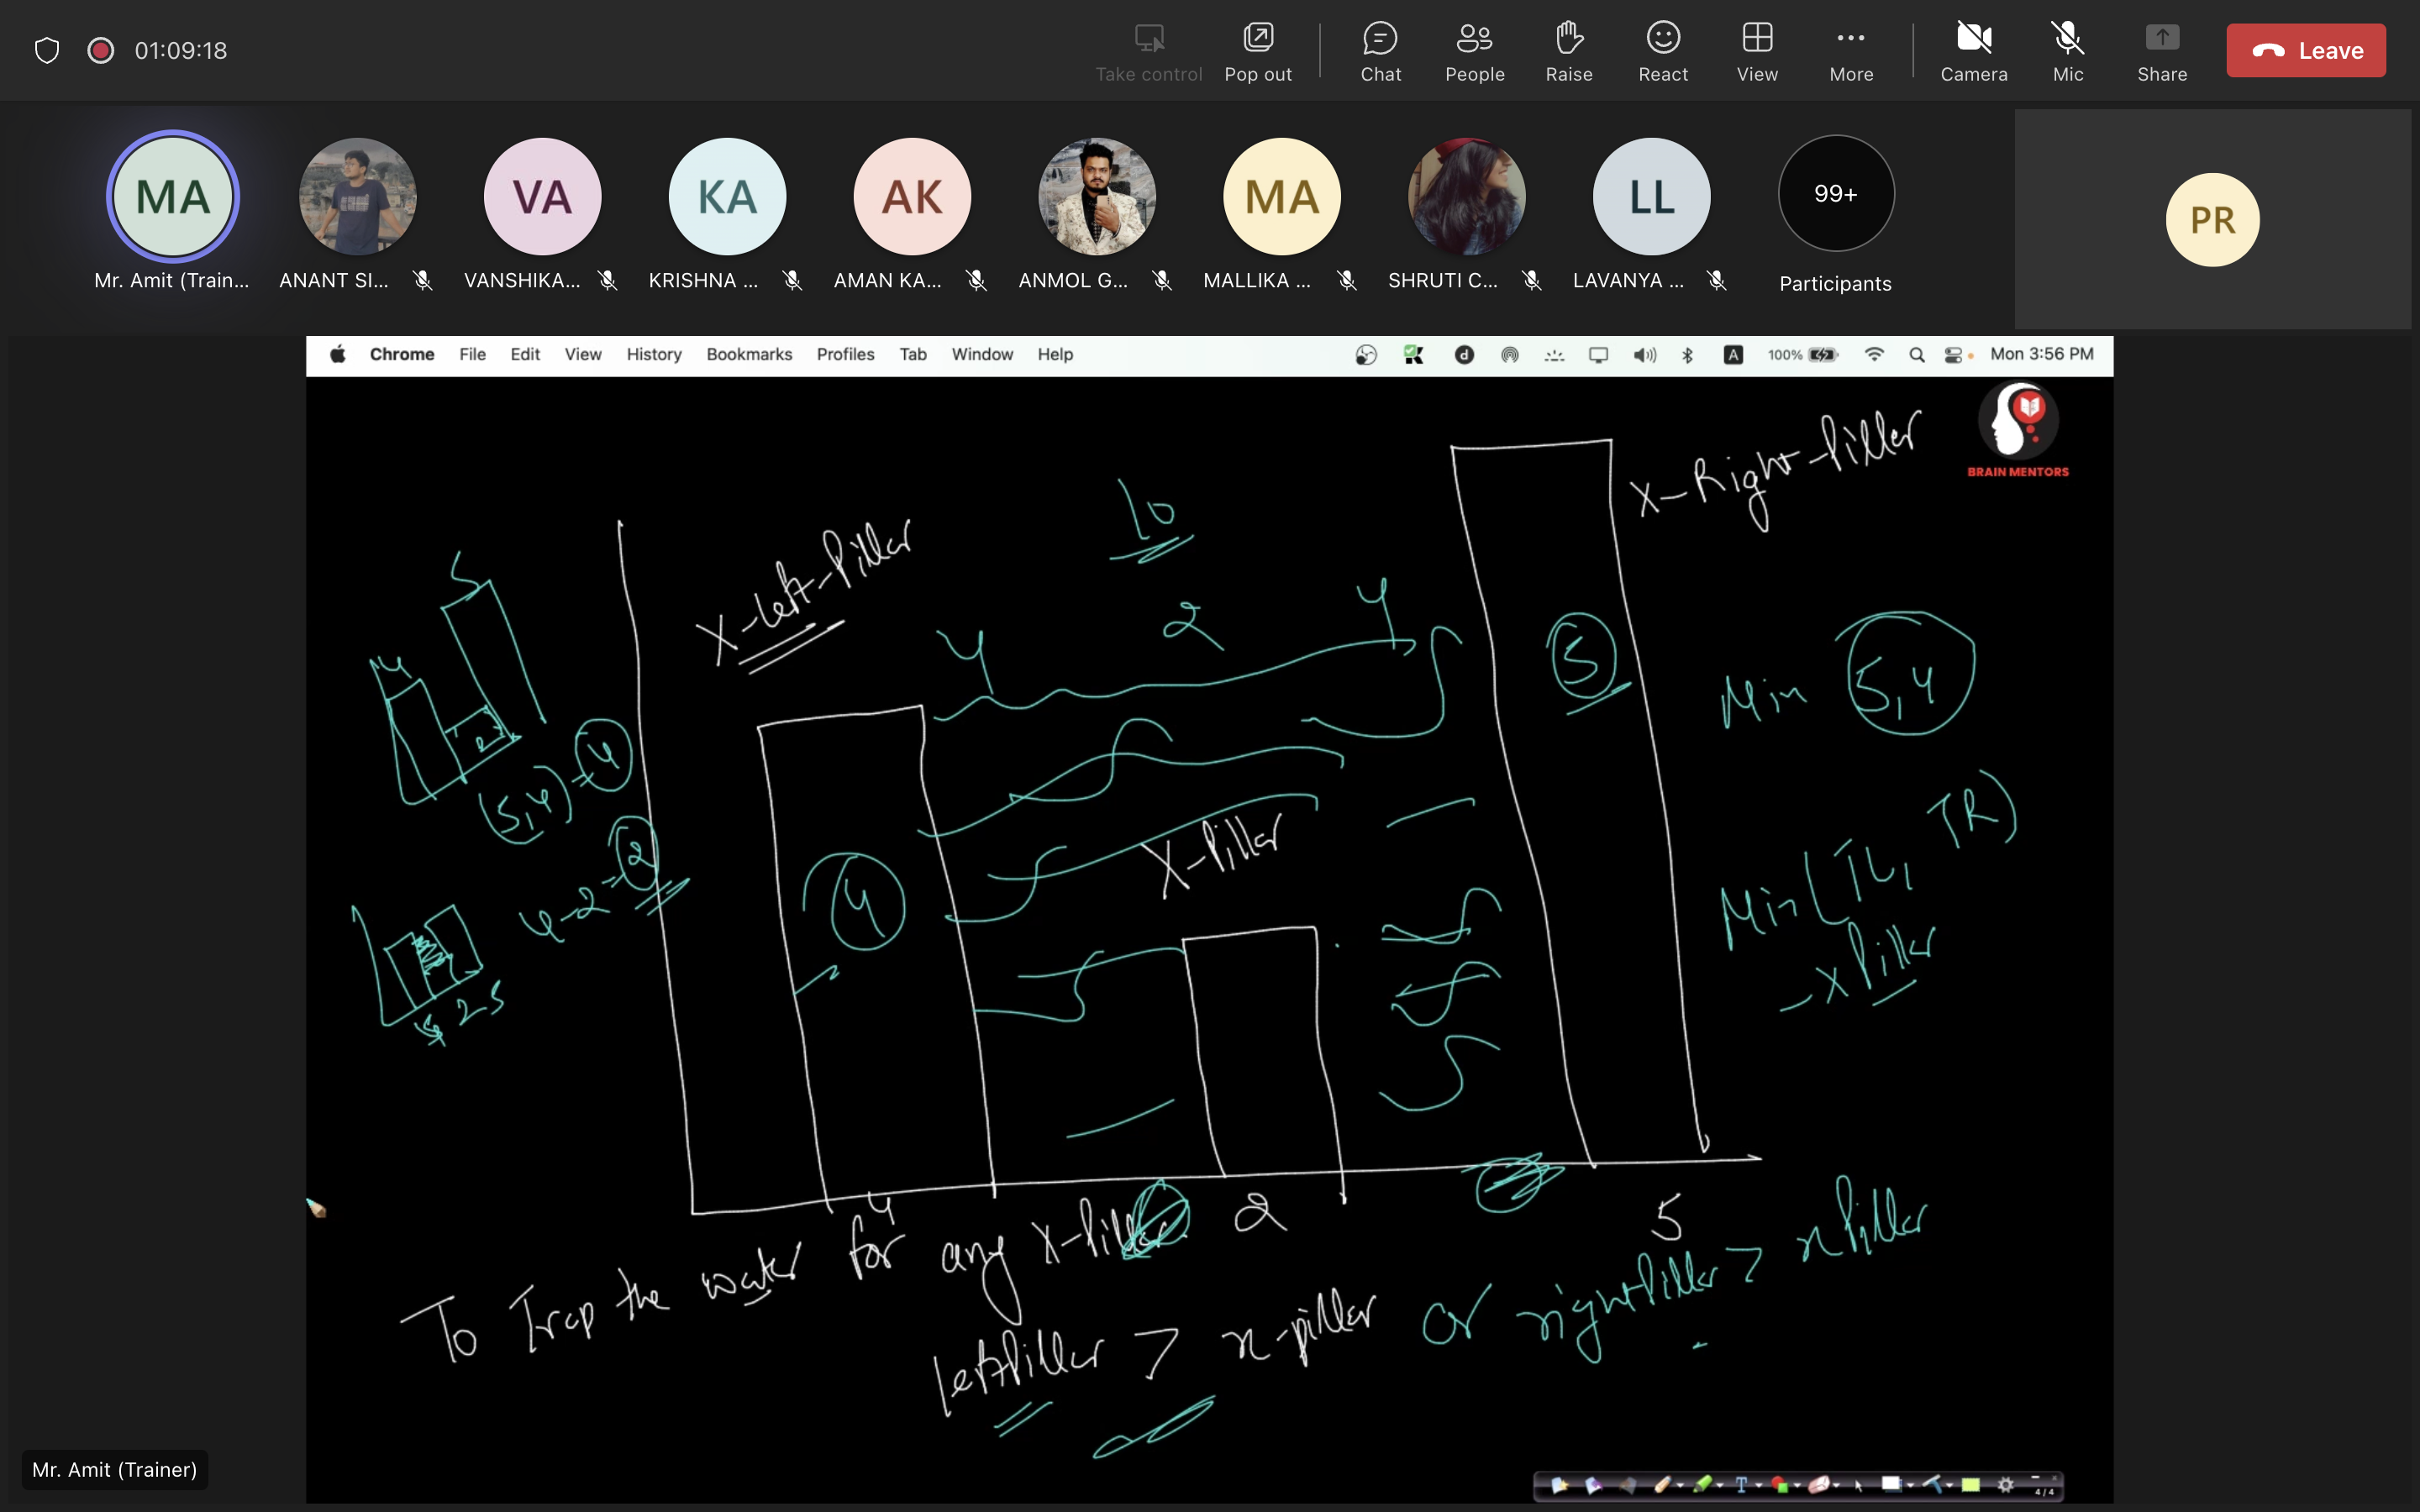 01:09:18
Take control
Pop out
Chat
People
Raise
React
View
More
Camera
Mic
Share
Leave
MA
VA
KA
AK
MA
LL
99+
PR
Mr. Amit (Train...
ANANT SI...
VANSHIKA...
KRISHNA ...
AMAN KA...
ANMOL G...
MALLIKA ...
SHRUTI C...
LAVANYA ...
Participants
Chrome File Edit View History Bookmarks Profiles Tab Window Help
100%
Mon 3:56 PM
BRAIN MENTORS
X-Right-Piller
10
X-left-Piller
5
4
4
2
4
5
Min 5,4
2
(5,4) = 4
4-2=2
2-5
4
X-Piller
Min(TL, TR)
-X Piller
4
2
5
To Trap the water for any X-Piller
leftPiller > x-piller or rightPiller > xPiller
Mr. Amit (Trainer)
4/4